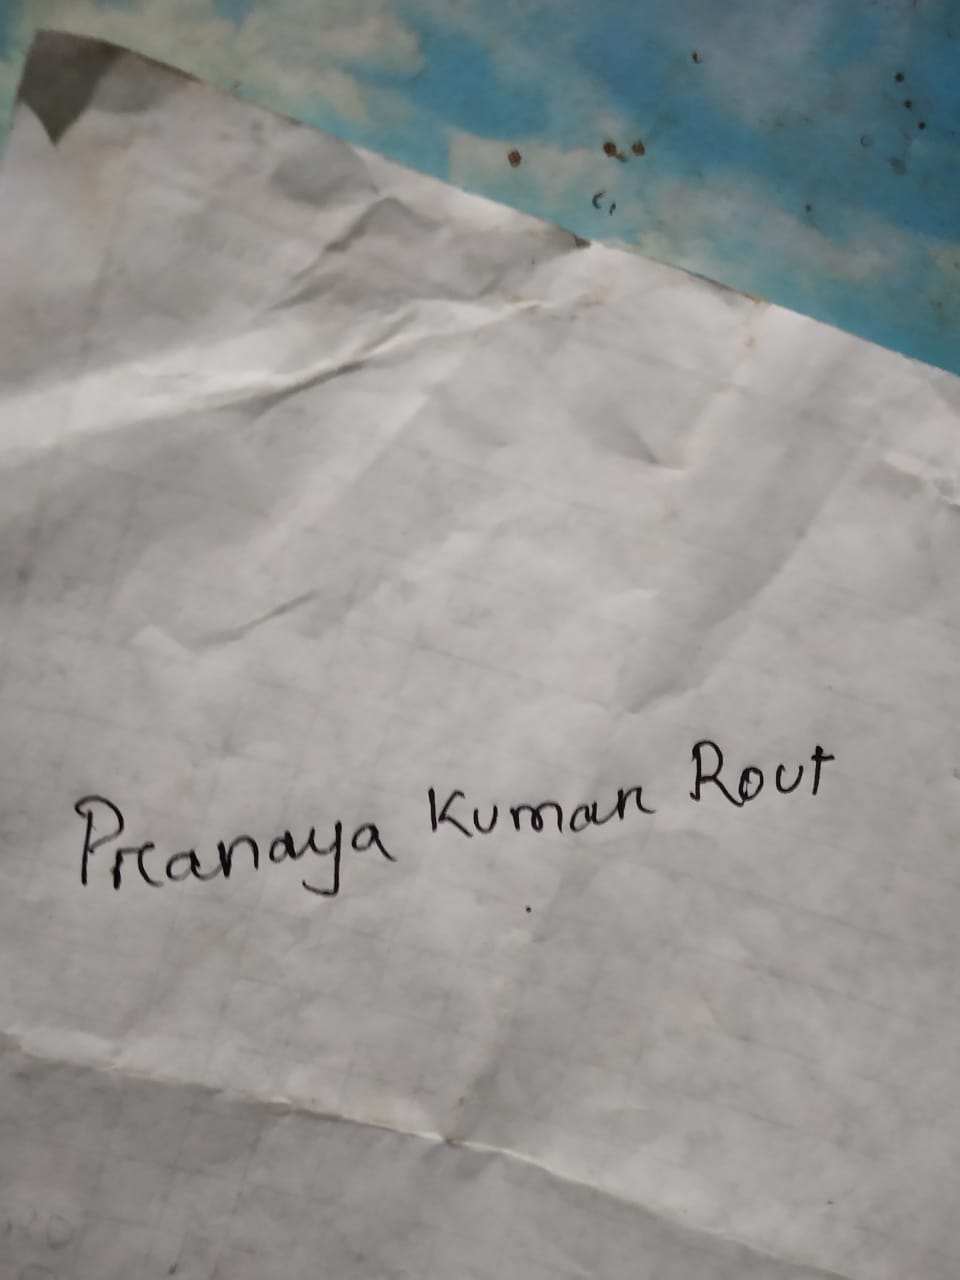 Pranaya Kumar Rout